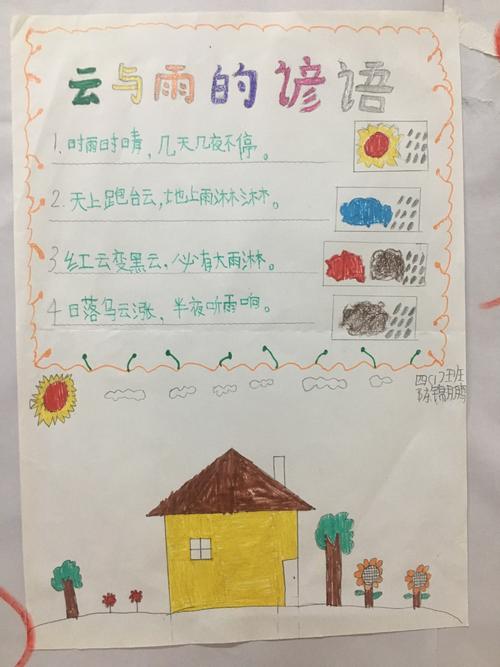 云与雨的谚语
1.时雨时晴，几天几夜不停。
2.天上跑台云，地上雨淋淋。
3.红云变黑云，必有大雨淋。
4日落乌云涨，半夜听雨响。
四(1)班
陈锦鹏